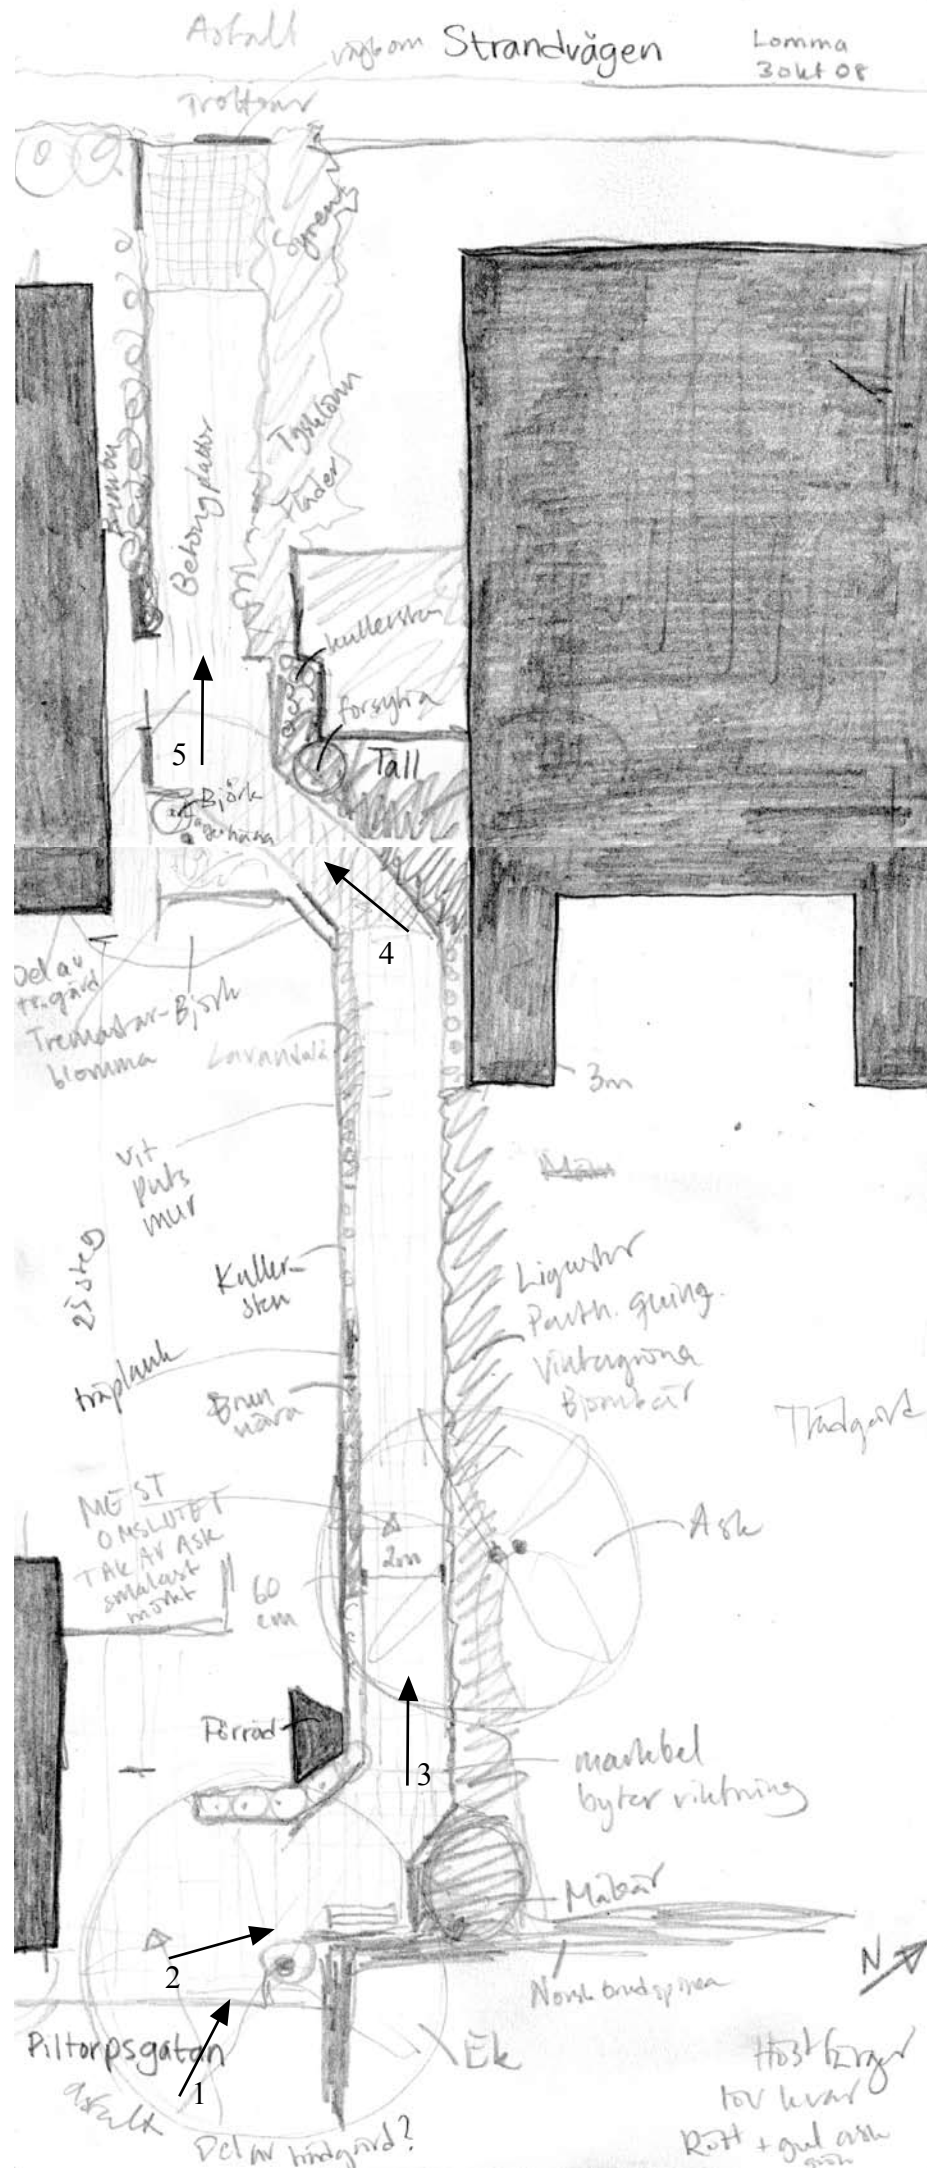 Asfalt
vägbom
Strandvägen
Lomma
3 okt 08
Trottoar
Syren
Tysklönn
Fläder
Betongplattor
kullersten
forsytia
Tall
5
Björk
4
Del av
tr.gård
Tremastar-
blomma
Björk
Lavendel
3m
vit
puts
mur
25 steg
Kuller-
sten
träplank
Brun
nära
Liguster
Parth. quinq.
Vintergröna
Björnbär
Trädgård
MEST
OMSLUTET
TAK AV ASK
smalast
mörkt
2m
60
cm
Ask
Förråd
3
markbel
byter riktning
Måbär
2
N
Norsk brudspirea
Piltorpsgatan
asfalt
1
Ek
Del av trädgård?
Höstfärger
löv kvar
Rött + gul ask